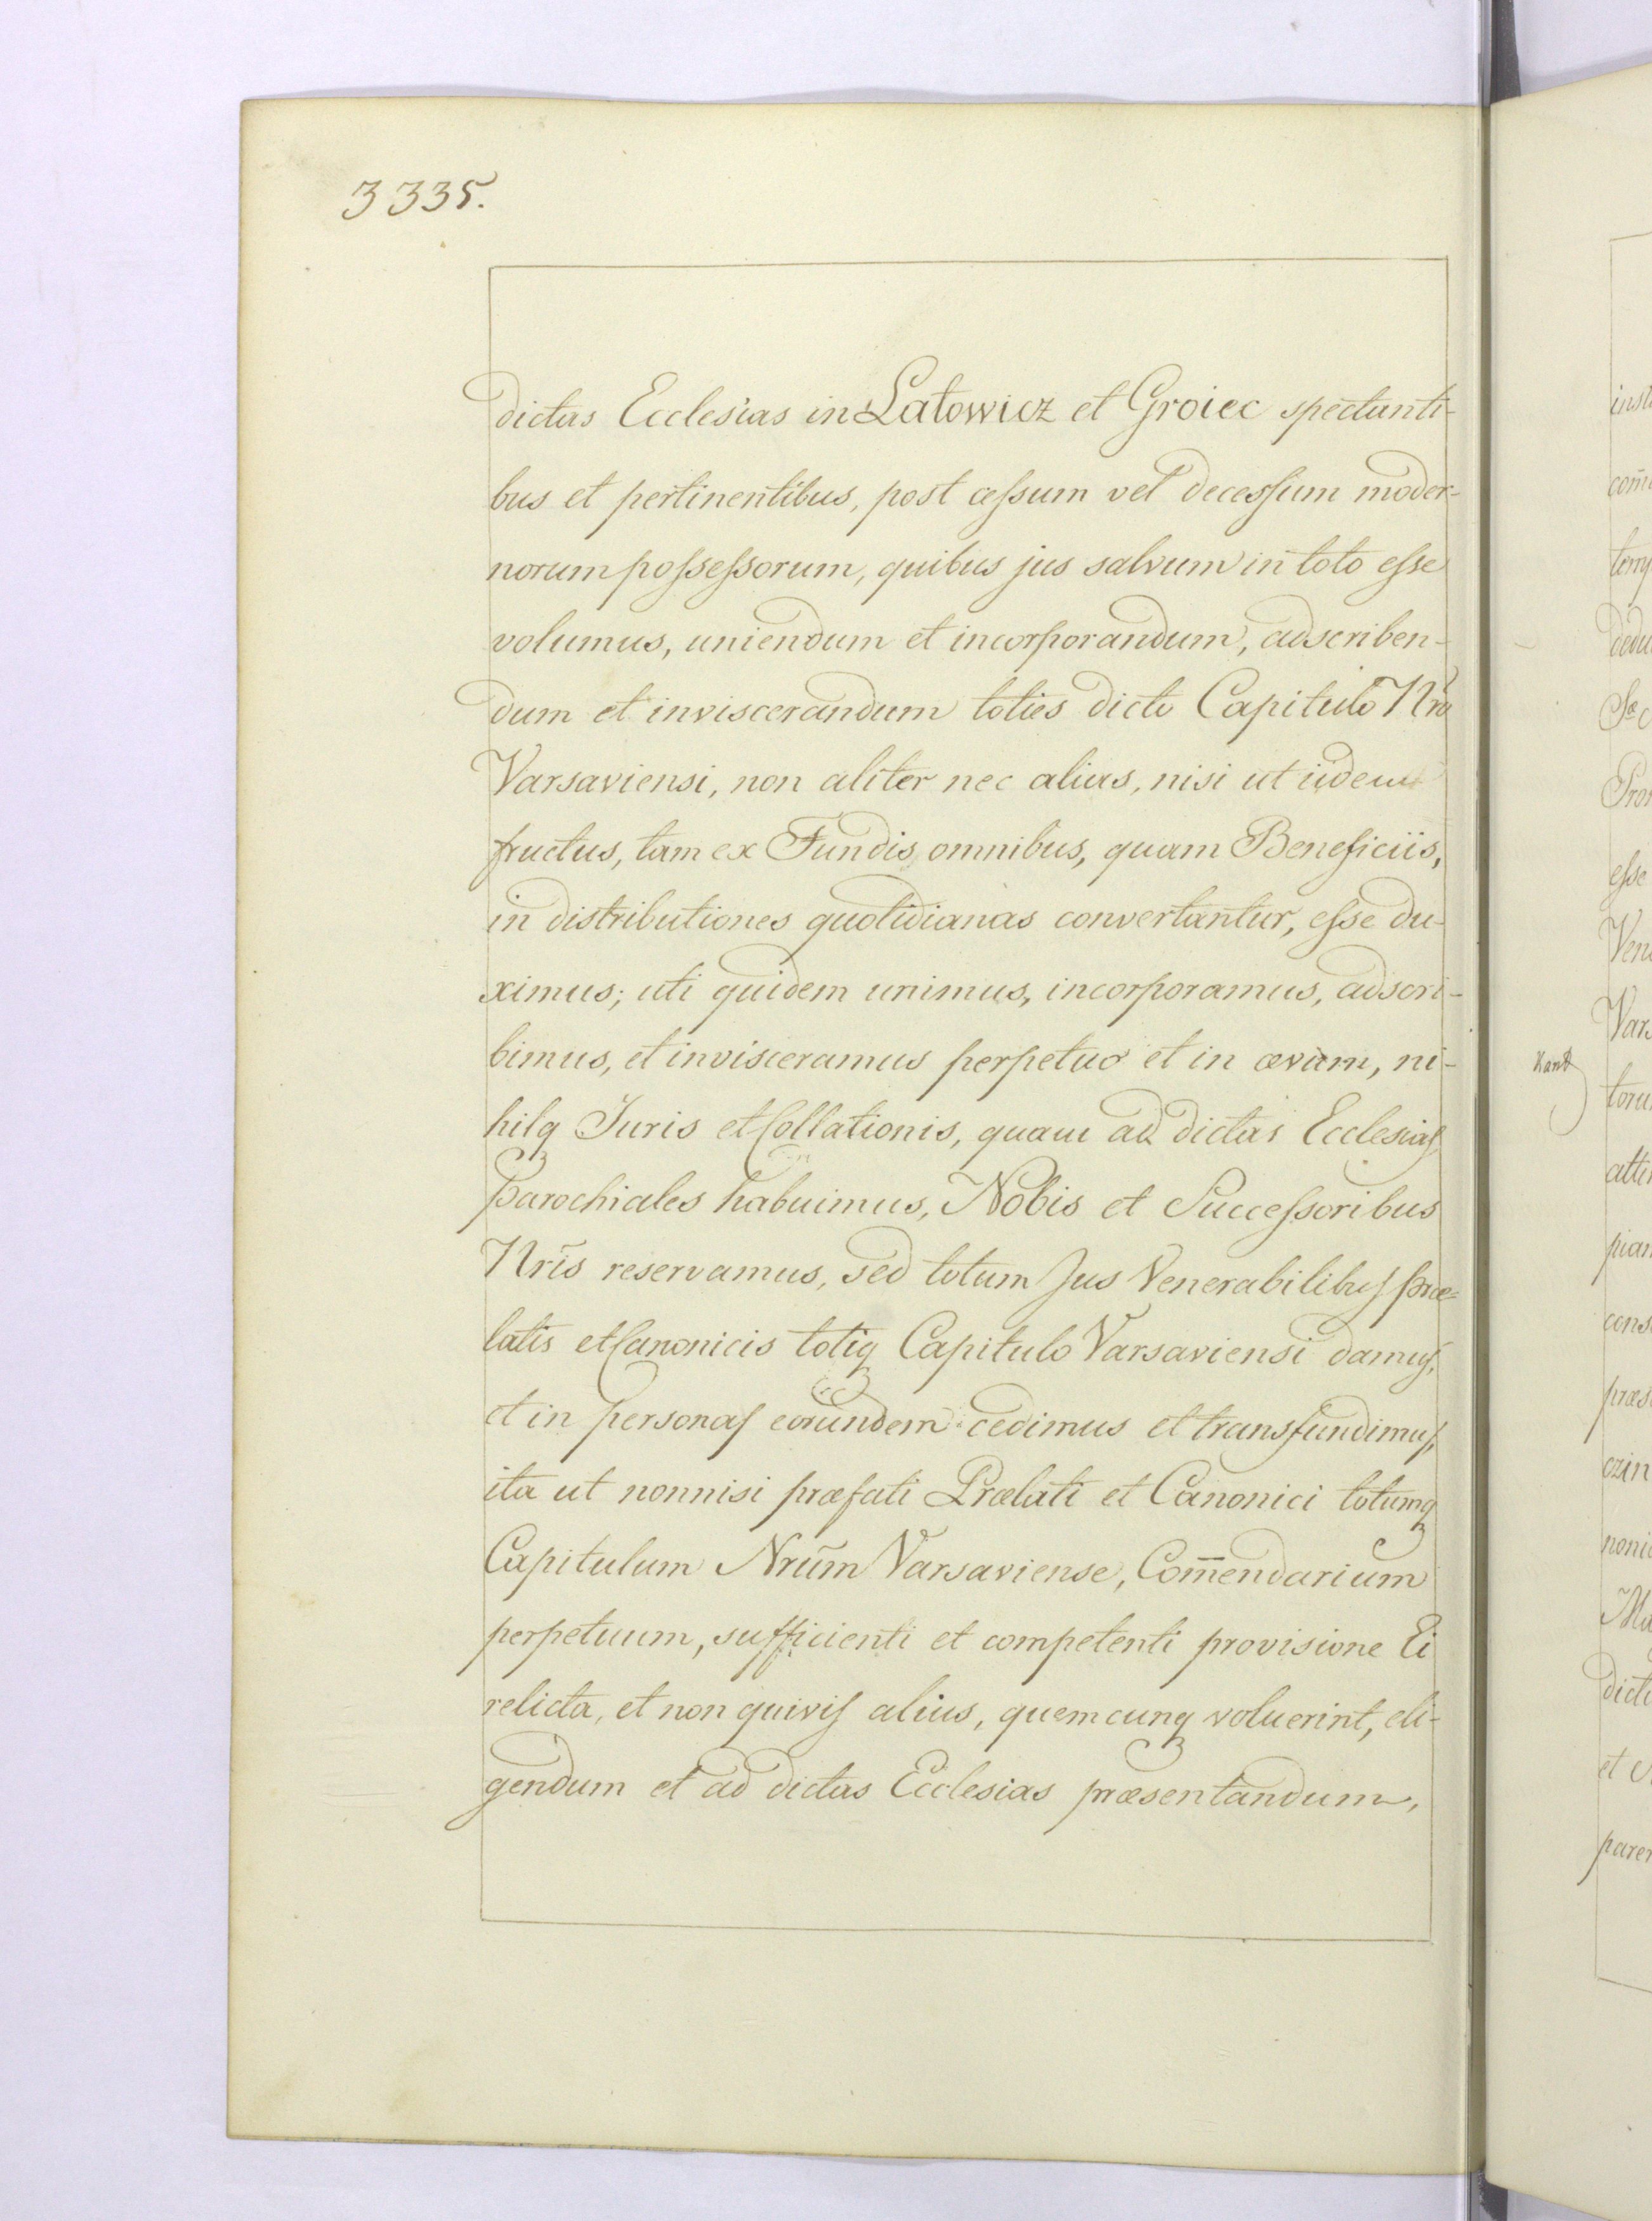 3335.
dictas Ecclesias in Latowicz et Groiec spectanti-
bus et pertinentibus, post cessum vel decessum moder-
norum possessorum, quibus jus salvum in toto esse
volumus, uniendum et incorporandum, adscriben-
dum et inviscerandum toties dicto Capitulo Nr̃o
Varsaviensi, non aliter nec alias, nisi ut iidem
fructus, tam ex Fundis omnibus, quam Beneficiis,
in distributiones quotidianas convertantur, esse du-
ximus; uti quidem unimus, incorporamus, adscri-
bimus, et invisceramus perpetuo et in ævum, ni-
hilq Juris et Collationis, quam ad dictas Ecclesias
parochiales habuimus, Nobis et Successoribus
Nr̃is reservamus, sed totum Jus Venerabilibus præ-
latis et Canonicis totiq Capitulo Varsaviensi damus,
et in personas eorundem cedimus et transfundimus,
ita ut nonnisi præfati Prælati et Canonici totumq
Capitulum Nrũm Varsaviense, Com̃endarium
perpetuum, sufficienti et competenti provisione Ei
relicta, et non quivis alius, quemcunq voluerint, eli-
gendum et ad dictas Ecclesias præsentandum,